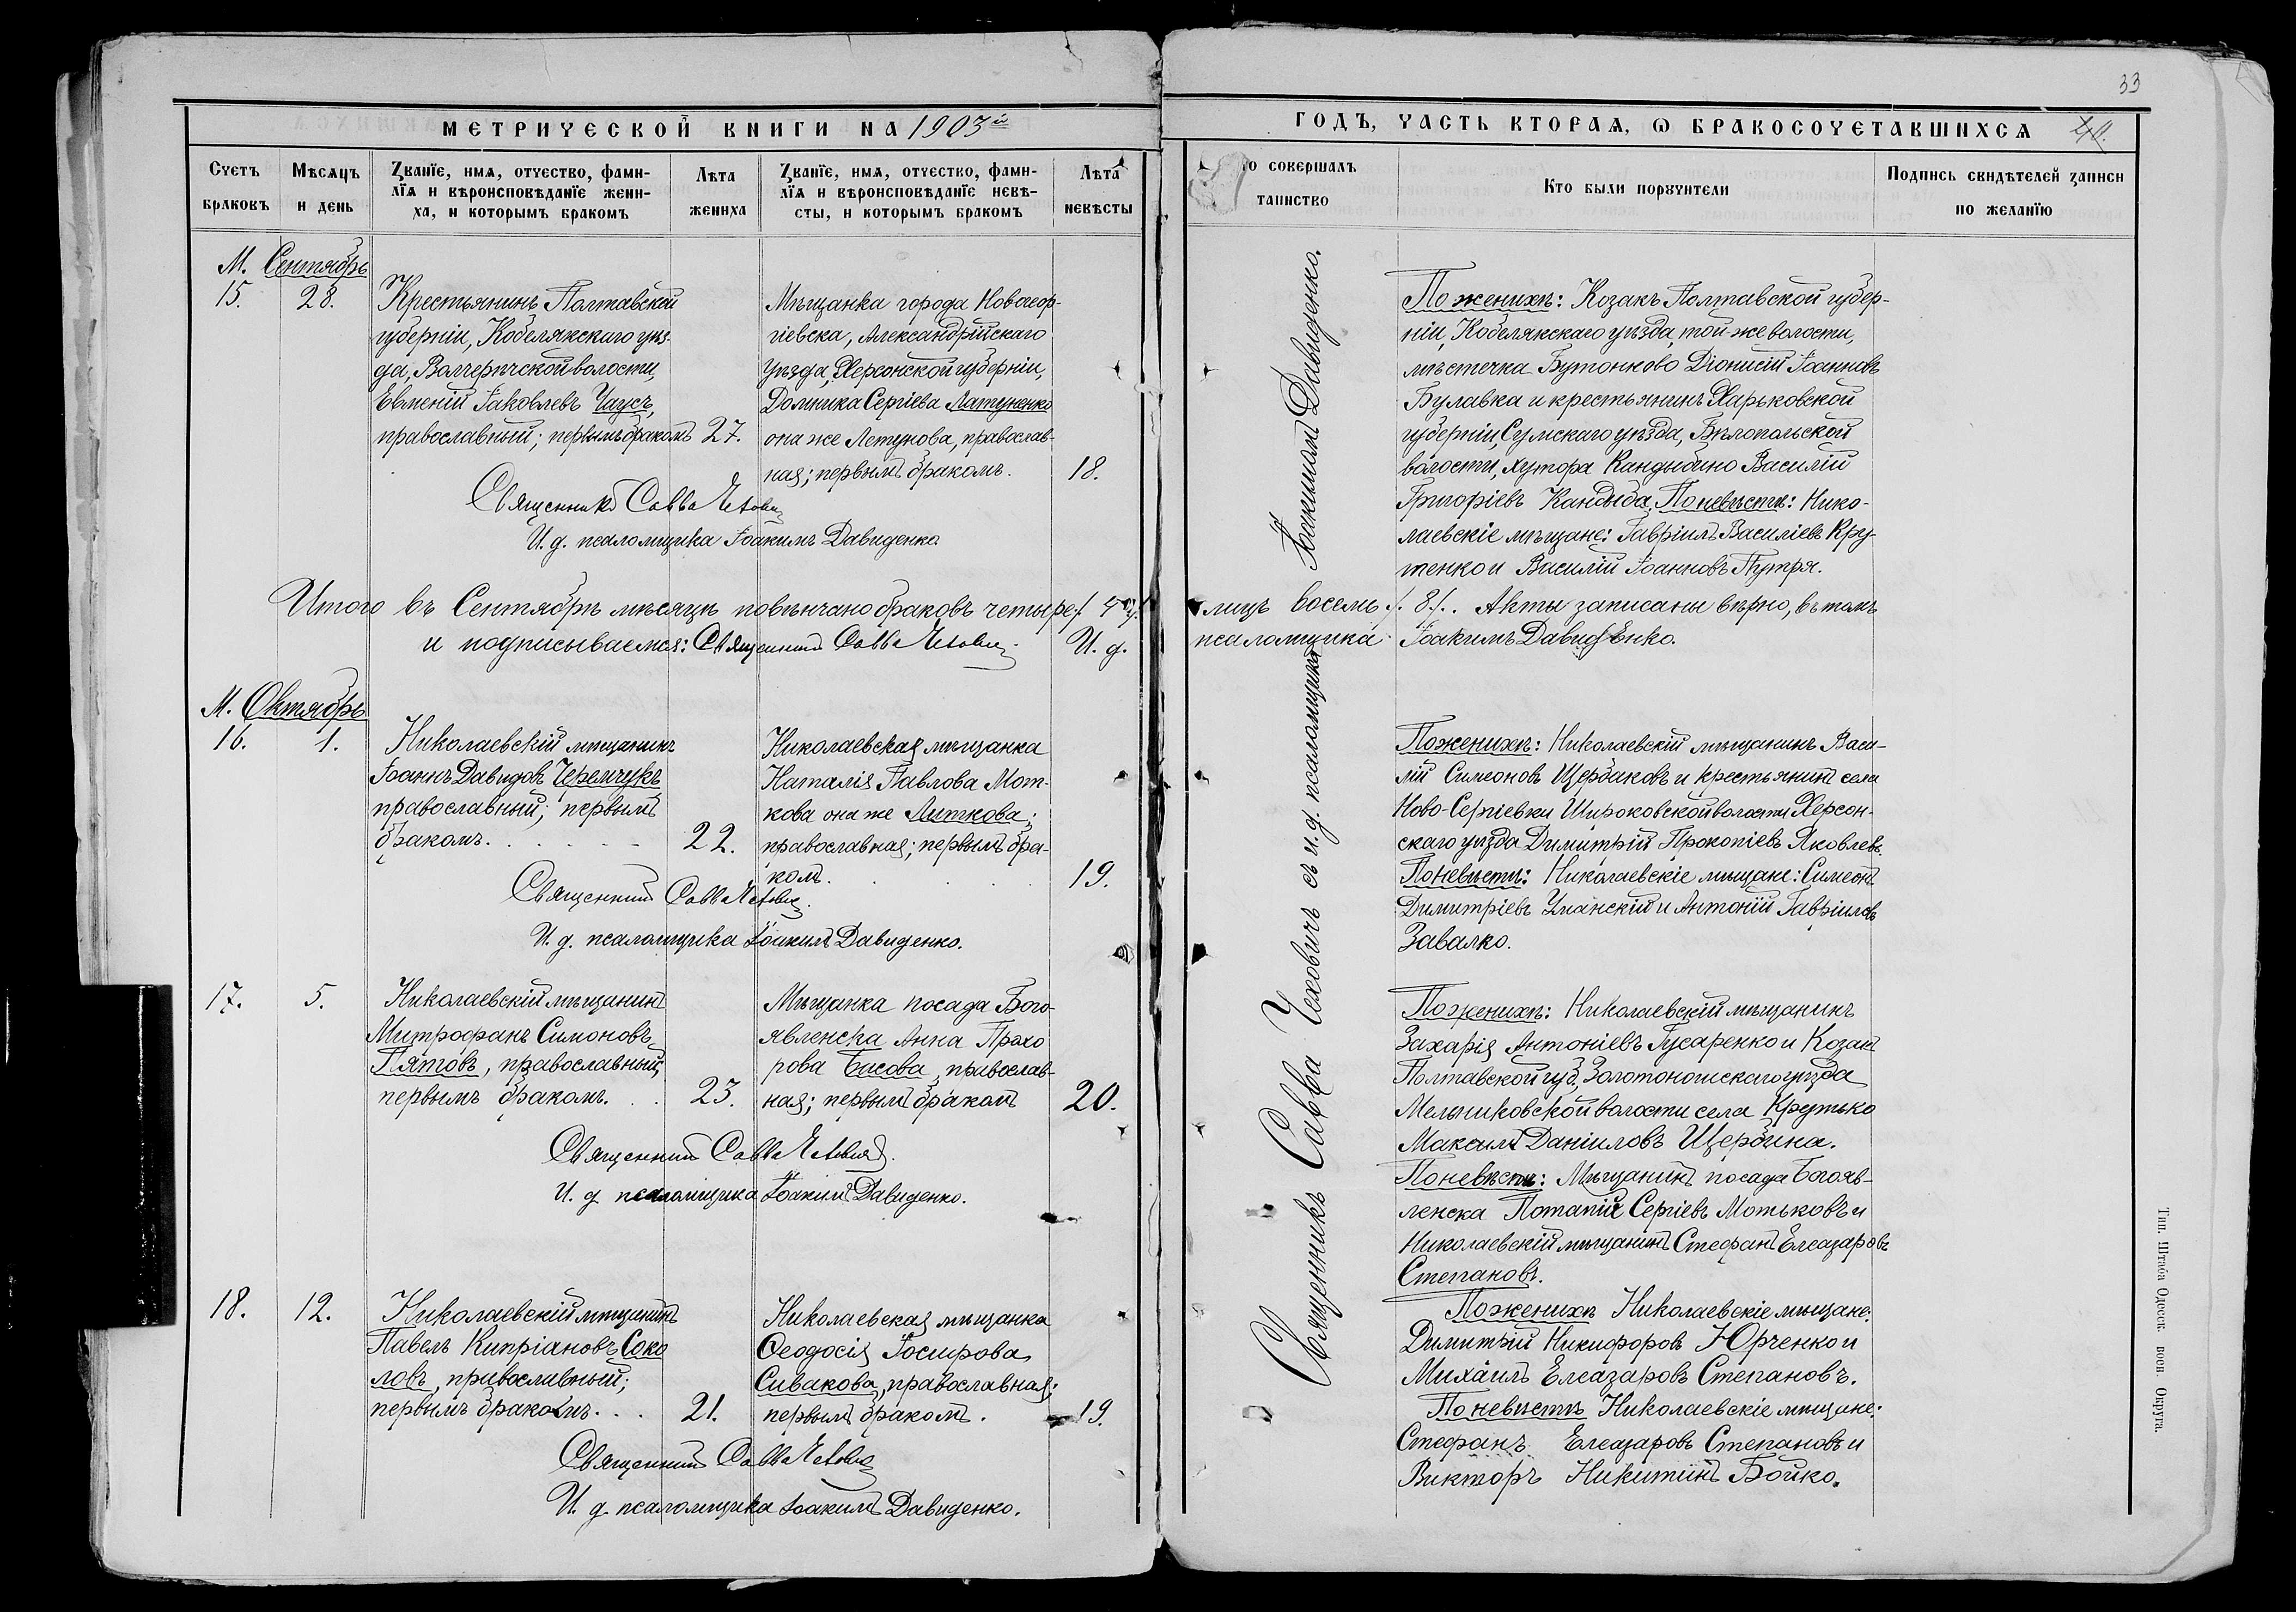 33
МЕТРИЧЕСКОЙ КНИГИ НА 1903й
ГОДЪ, ЧАСТЬ ВТОРАЯ, О БРАКОСОЧЕТАВШИХСЯ
Счетъ
браковъ
Мѣсяцъ
и день
Званіе, имя, отчество, фами-
лія и вѣроисповѣданіе жени-
ха, и которымъ бракомъ
Лѣта
жениха
Званіе, имя, отчество, фами-
лія и вѣроисповѣданіе невѣ-
сты, и которымъ бракомъ
Лѣта
невѣсты
то совершалъ
таинство
Кто были поручители
Подпись свидѣтелей записи
по желанію
М. Сентябрь
15. 28.
Крестьянинъ Полтавской
губерніи, Кобелякскаго уѣз-
да, волости,
Евмений Іаковлевъ Чаусъ,
православный; первымъ бракомъ 27.
Мѣщанка города Новгеор-
гіевска, Александрійскаго
уѣзда, Херсонской губерніи,
Домника Сергіева Латуненко
она же Летунова, православ-
ная; первымъ бракомъ. 18.
Священникъ Савва Чехович
И. д. псаломщика Іоакимъ Давиденко
По женихѣ: Козакъ Полтавской губер-
ніи, Кобелякскаго уѣзда, той же волости,
мѣстечка Бутонково Діонисій Іоанновъ
Булавка и крестьянинъ Харьковской
губерніи, Сумскаго уѣзда, Бѣлопольской
волости, хутора Кандыбино Василій
Григоріевъ Кандыба. По невѣстѣ: Нико-
лаевскіе мѣщане: Гавріилъ Василіевъ Кру-
тенко и Василій Іоанновъ Путря.
Итого въ Сентябрѣ мѣсяцѣ повѣнчано браковъ четыре /4/
лицъ восемь /8/. Акты записаны вѣрно, въ томъ
и подписываемся: Священникъ Савва Чехович. И. д.
псаломщика Іоакимъ Давиденко.
М. Октябрь
16. 1.
Николаевскій мѣщанинъ
Іоаннъ Давидовъ Черемчукъ
православный; первымъ
бракомъ. 22.
Николаевская мѣщанка
Наталія Павлова Мот-
кова она же Литкова;
православная; первымъ бра-
комъ. 19.
Священникъ Савва Чехович.
И. д. псаломщика Іоакимъ Давиденко.
По женихѣ: Николаевскій мѣщанинъ Васи-
лій Симеоновъ Щербаковъ и крестьянинъ села
Ново-Сергіевки Широковской волости Херсон-
скаго уѣзда Димитрій Прокопіевъ Яковлевъ.
По невѣстѣ: Николаевскіе мѣщане: Симеонъ
Димитріевъ Уманскій и Антоній Гавріиловъ
Завалко.
17. 5.
Николаевскій мѣщанинъ
Митрофанъ Симоновъ
Пятовъ, православный,
первымъ бракомъ. 23.
Мѣщанка посада Бого-
явленска Анна Прохо
рова Басова, православ-
ная; первымъ бракомъ 20.
Священникъ Савва Чехович.
И. д. псаломщика Іоакимъ Давиденко.
По женихѣ: Николаевскій мѣщанинъ
Захарія Антоніевъ Гусаренко и Козакъ
Полтавской губ. Золотоношскаго уѣзда
Мельниковской волости села Крутько
Максимъ Даніиловъ Щербина.
По невѣстѣ: Мѣщанинъ посада Богояв-
ленска Потапій Сергіевъ Мотьковъ и
Николаевскій мѣщанинъ Стефанъ Елеазаровъ
Степановъ.
18. 12.
Николаевскій мѣщанинъ
Павелъ Кипріановъ Соко
ловъ, православный;
первымъ бракомъ. 21.
Николаевская мѣщанка
Ѳеодосія Іосифова
Сивакова, православная;
первымъ бракомъ. 19.
Священникъ Савва Чехович
И. д. псаломщика Іоакимъ Давиденко.
По женихѣ Николаевскіе мѣщане:
Димитрій Никифоровъ Юрченко и
Михаилъ Елеазаровъ Степановъ.
По невѣстѣ Николаевскіе мѣщане:
Стефанъ Елеазаровъ Степановъ и
Викторъ Никитинъ Бойко.
Священникъ Савва Чеховичъ съ и. д. псаломщика Іоакимомъ Давиденко.
Тип. Штаба Одесск. воен. Округа.